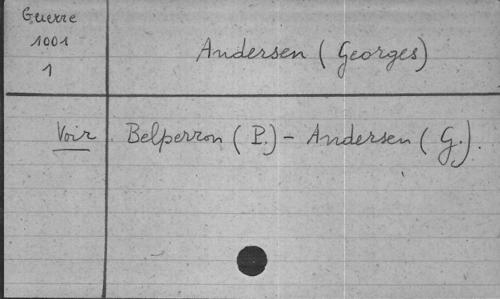 Guerre
1001
1
Andersen (Georges)
Voir Belperron (P.) - Andersen (G.).